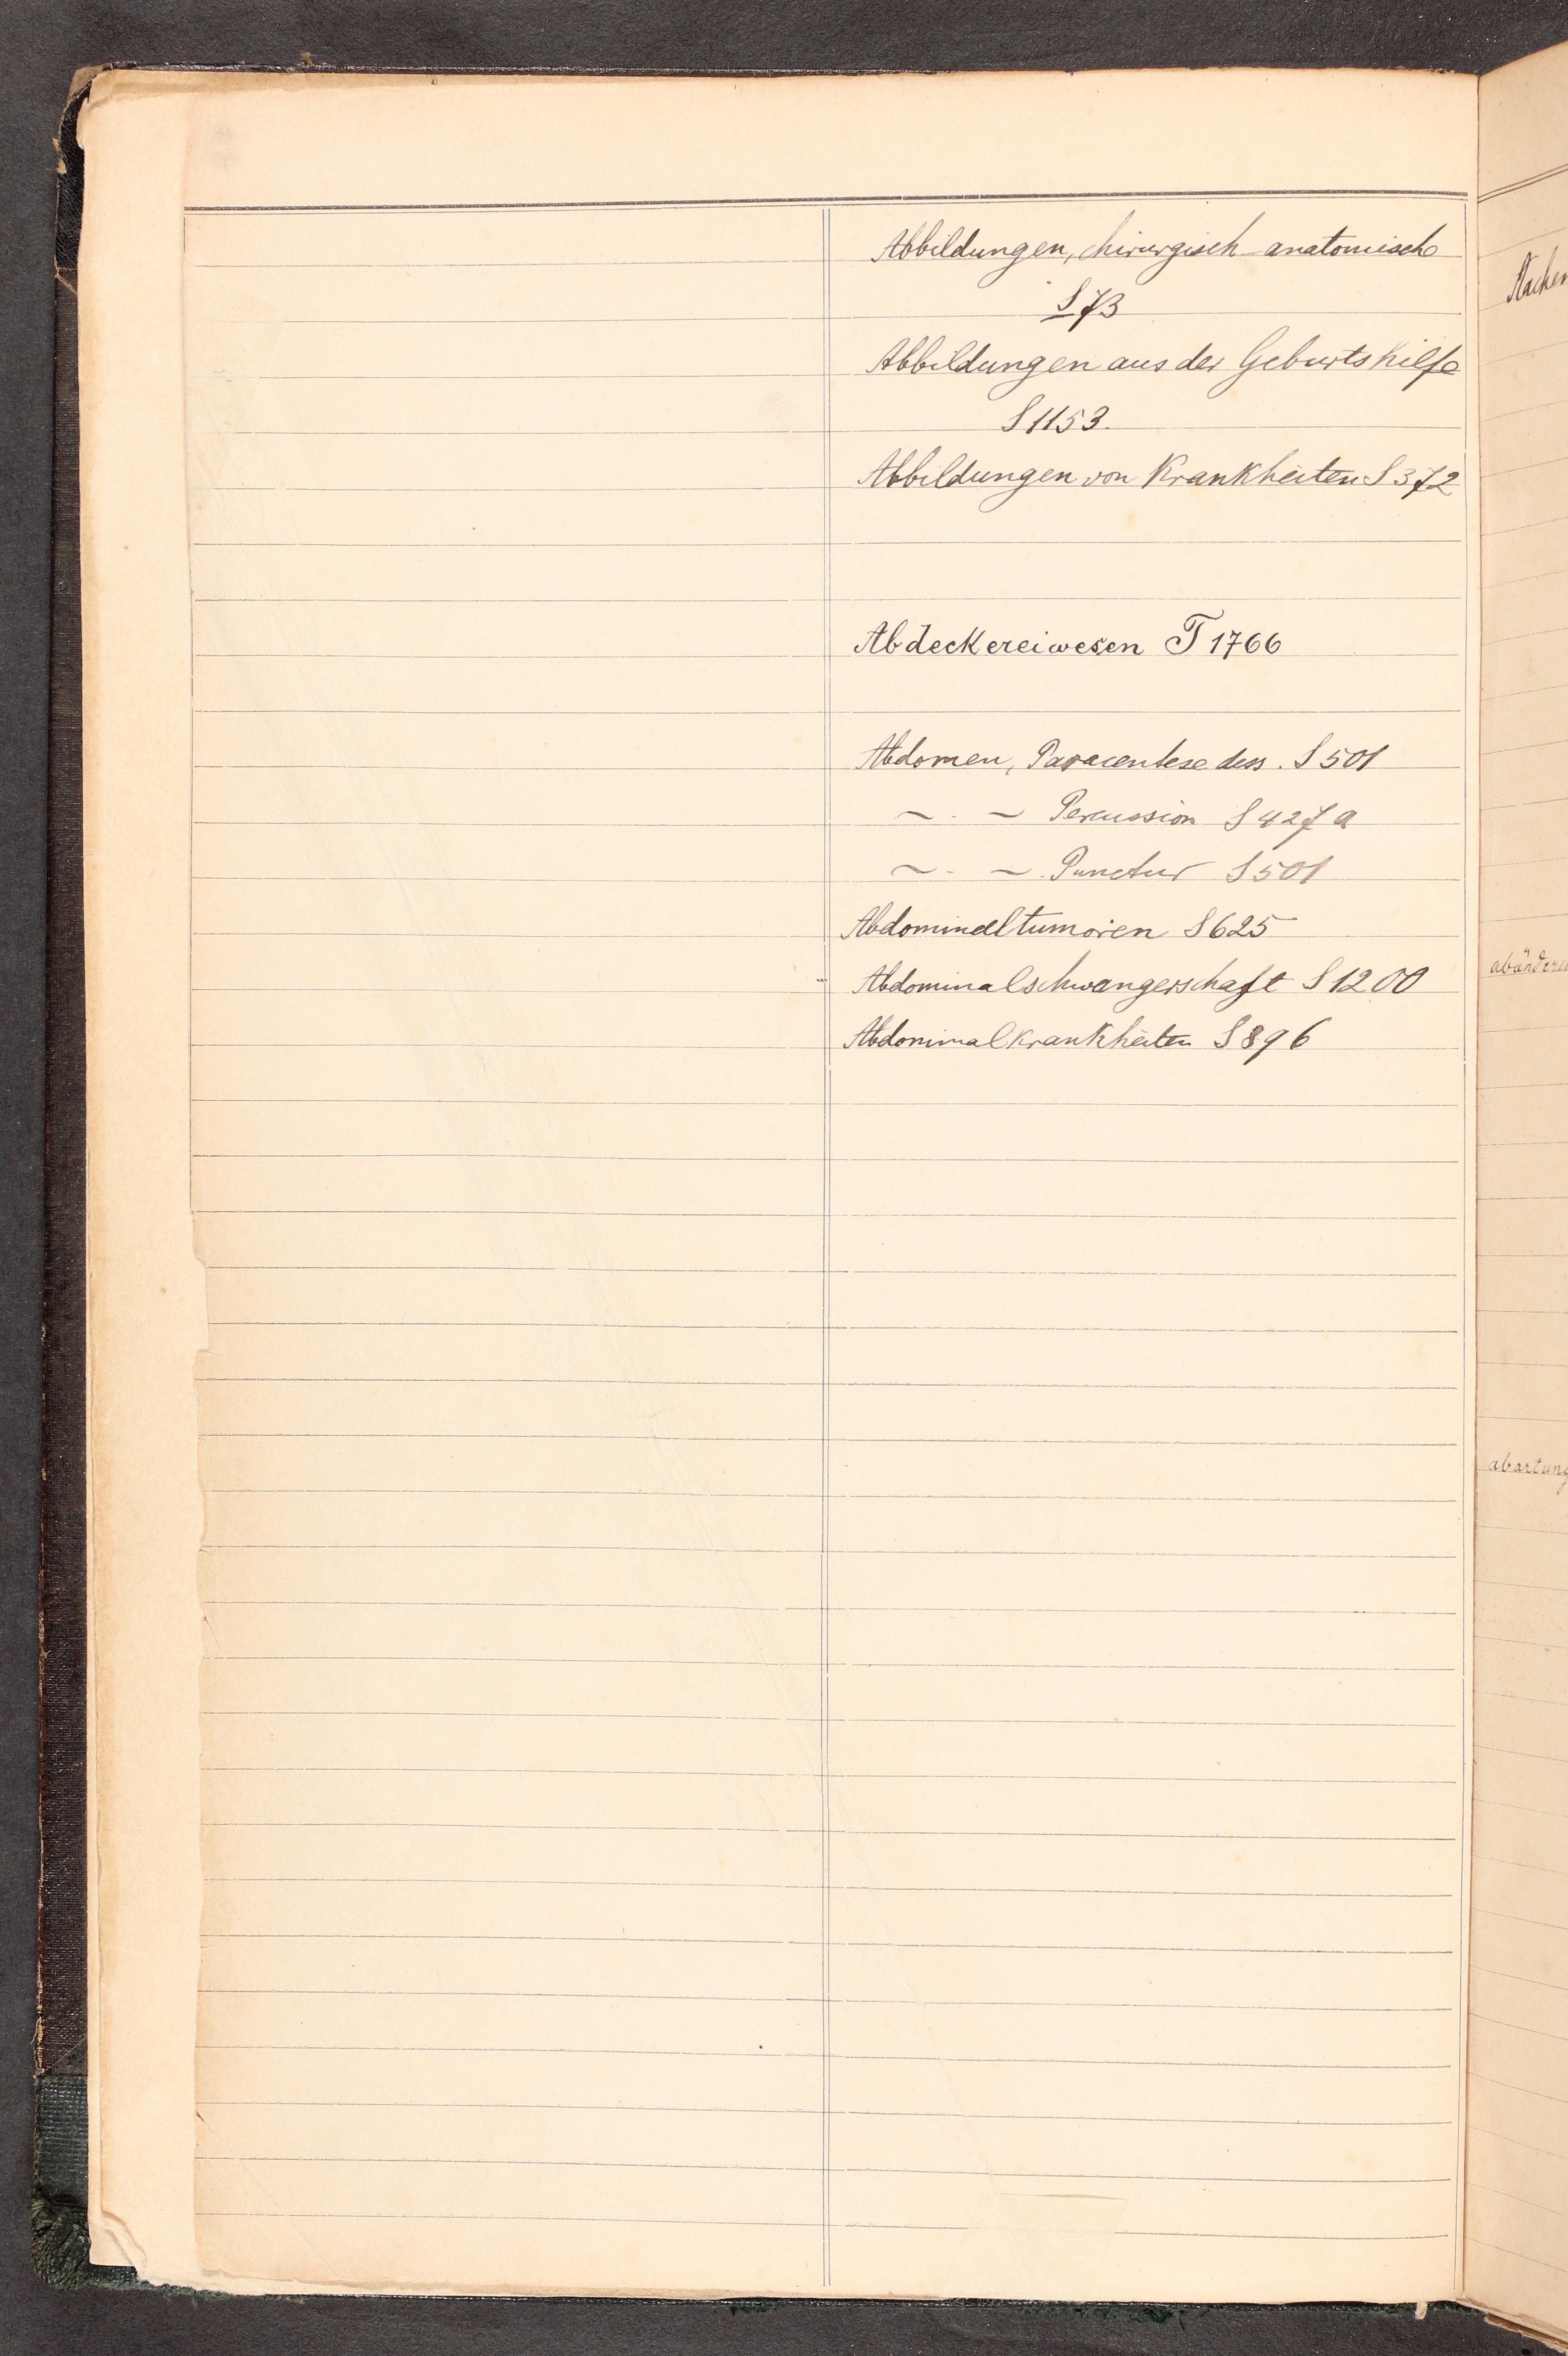 Abbildungen, chirurgisch-anatomische
S 73
Abbildungen aus der Geburtshilfe
S 1153.
Abbildungen von Krankheiten S 372
Abdeckereiwesen T 1766
Abdomen, Paracentese dess. S 501
~ . ~ Percussion S 427 a
~ . ~ Punctur S 501
Abdominaltumoren S 625
Abdominalschwangerschaft S 1200
Abdominalkrankheiten S 896
abartung